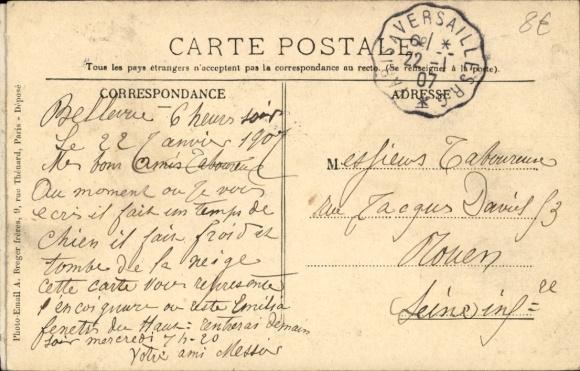 8€
CARTE POSTALE
Tous les pays étrangers n'acceptent pas la correspondance au recto. (Se renseigner à la poste).
A VERSAILLES R.G.
22 -1
07
CORRESPONDANCE
Bellevue - 6 heurs soir
Le 22 Janvier 1907
Mes bons amis Taboureux
Au moment ou Je vous
ecris il fait un temps de
chien il fait froid et
tombe de la neige
cette carte vous represente
l'encoignure ou este Emilia
fenetre du Haut = rentrerai demain
soir mercredi 7h-20
Votre ami Messier
ADRESSE
Messieurs Taboureux
rue Jacques Daviel 53
Rouen
Seine inf=re
Photo-Email A. Breger frères, 9, rue Thénard, Paris - Déposé